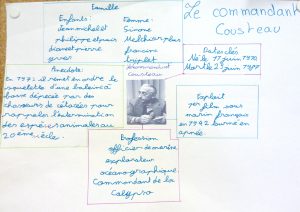 Le commandant
Cousteau
Famille
Enfants:
Jean michel et
philippe et puis
diane et pierre
yves
Femme:
Simone
Melchior plus
francine
triplet
Dates clés
Né le 11 juin 1910
Mort le 25 juin 1997
Anecdote:
En 1972 il remet en ordre le
squelette d'une baleine à
bosse dépecée par des
chasseurs de cétacés pour
rappeler l'extermination
des espèces animales au
20ème siècle.
Commandant
Cousteau
Exploit
1er film sous
marin français
en 1942 tourné en
apnée
Profession
officier de marine
explorateur
océanographique
Commandant de la
Calypso